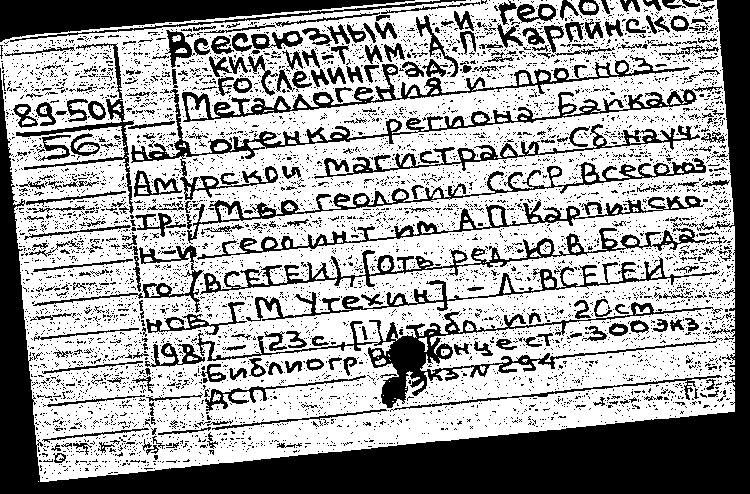 Всесоюзный н.-и. геологичес-
кий ин-т им. А.П. Карпинско-
го (Ленинград).
89-50К
56
Металлогения и прогноз-
ная оценка региона Байкало-
Амурской магистрали: Сб. науч.
тр. / М-во геологии СССР, Всесоюз.
н-и. геол. ин-т им. А.П. Карпинско-
го (ВСЕГЕИ); [Отв. ред. Ю.В. Богда-
нов, Г.М. Утехин]. - Л.: ВСЕГЕИ, -
1987. - 123 с., [1] л. табл.: ил.; 20 см.
Библиогр. в конце ст. - 300 экз.
ДСП. Экз. N 294.